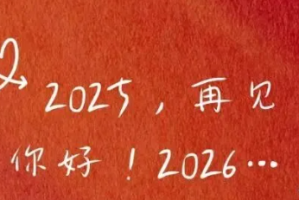 2025，再见
你好！2026…